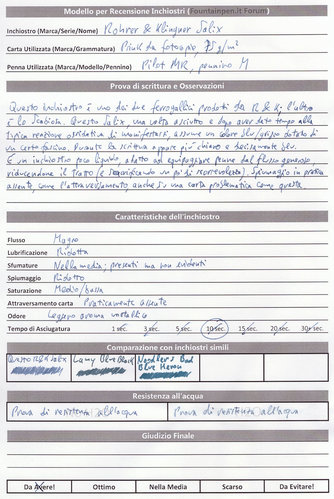 Modello per Recensione Inchiostri (Fountainpen.it Forum)
Inchiostro (Marca/Serie/Nome) Rohrer & Klingner Salix
Carta Utilizzata (Marca/Grammatura) Pink da fotocopie 75 g/m²
Penna Utilizzata (Marca/Modello/Pennino) Pilot MR, pennino M
Prova di scrittura e Osservazioni
Questo inchiostro è uno dei due ferrogallici prodotti da R&K; l'altro
è lo Scabiosa. Questo Salix, una volta asciutto e dopo aver dato tempo alla
tipica reazione ossidativa di manifestarsi, assume un color blu/grigio dotato di
un certo fascino. Durante la scrittura appare più chiaro e decisamente blu.
È un inchiostro poco liquido, adatto ad equipaggiare penne dal flusso generoso,
riducendone il tratto (e sacrificando un po' di scorrevolezza). Spiumaggio in pratica
assente, come l'attraversamento anche su una carta problematica come questa.
Caratteristiche dell'inchiostro
Flusso Magro
Lubrificazione Ridotta
Sfumature Nella media; presenti ma non evidenti
Spiumaggio Ridotto
Saturazione Medio/bassa
Attraversamento carta Praticamente assente
Odore Leggero aroma
Tempo di Asciugatura 1 sec. 3 sec. 5 sec. 10 sec. 15 sec. 20 sec. 30+sec.
Comparazione con inchiostri simili
Questo R&K Salix Lamy Blue Black Noodler's Bad
Blue Heron
Resistenza all'acqua
Prova di resistenza all'acqua Prova di resistenza all'acqua
Giudizio Finale
Da Avere! Ottimo Nella Media Scarso Da Evitare!